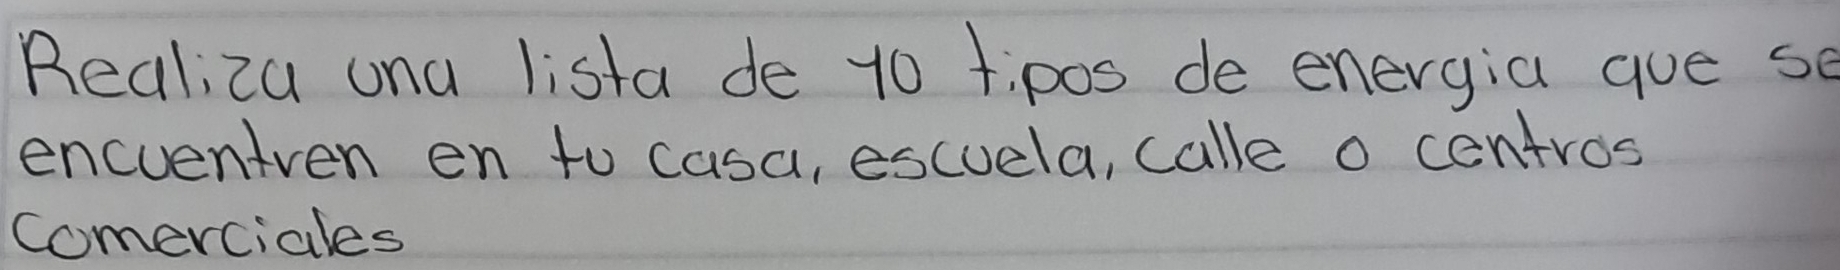 Realiza una lista de 10 tipos de energia que se
encuentren en tu casa, escuela, calle o centros
comerciales